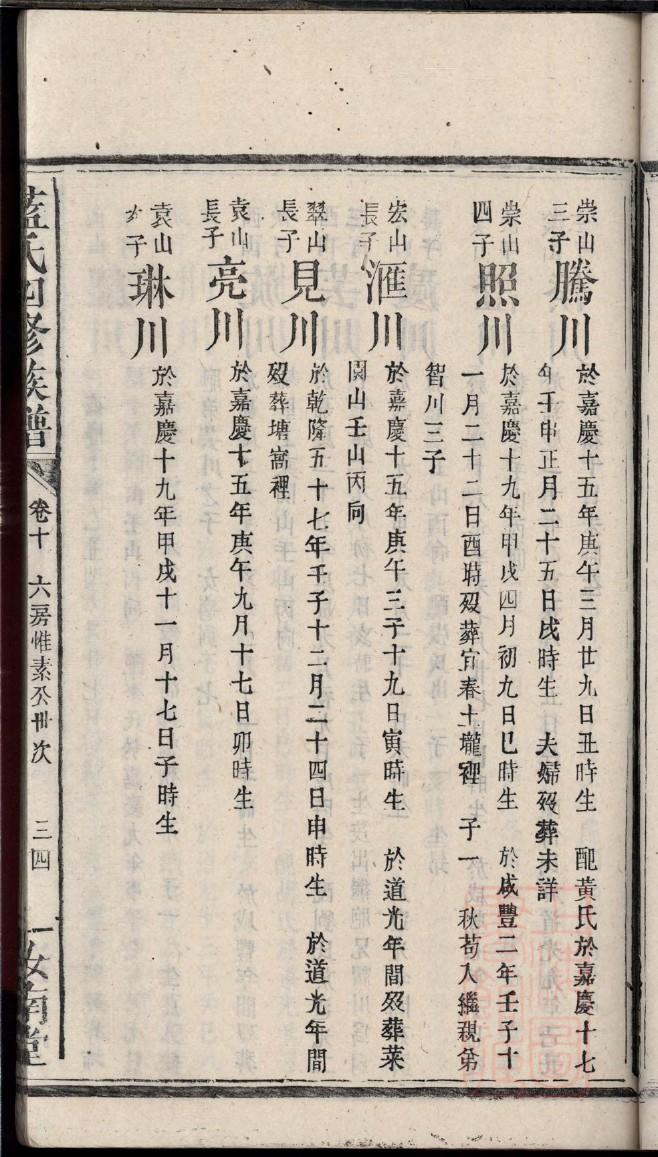 崇山三子
騰川
於嘉慶十五年庚午三月廿九日丑時生 配黃氏於嘉慶十七
年壬申正月二十五日戌時生 夫婦歿葬未詳
崇山四子
照川
於嘉慶十九年甲戌四月初九日巳時生 於咸豐二年壬子十
一月二十二日酉時歿葬宜春土壠裡 子一 秋苟入繼親弟
智川三子
宏山長子
滙川
於嘉慶十五年庚午三子十九日寅時生 於道光年間歿葬菜
園山壬山丙向
翠山長子
見川
於乾隆五十七年壬子十二月二十四日申時生 於道光年間
歿葬塘窩裡
袁山長子
亮川
於嘉慶十五年庚午九月十七日卯時生
袁山次子
琳川
於嘉慶十九年甲戌十一月十七日子時生
藍氏四修族譜
卷十 六房惟素公世次
三四
汝南堂